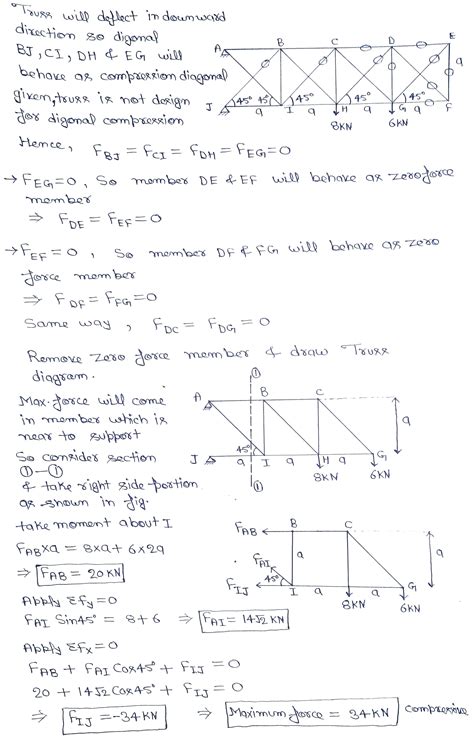 Truss will deflect in downward
direction so digonal
BJ, CI, DH & EG will
behave as compression diagonal
given, truss is not design
for digonal compression
A B C D E
J 45° 45° I 45° H 45° G 45° F
a a a a
8KN 6KN
Hence, F_BJ = F_CI = F_DH = F_EG = 0
→ F_EG = 0, So member DE & EF will behave as zero force
member
⇒ F_DE = F_EF = 0
→ F_EF = 0, So member DF & FG will behave as zero
force member
⇒ F_DF = F_FG = 0
Same way, F_DC = F_DG = 0
Remove zero force member & draw Truss
diagram.
Max. force will come
in member which is
near to support
So consider section
①—①
& take right side portion
as shown in fig.
①
A B C
a
J 45° I H G
a a a
①
8KN 6KN
take moment about I
F_AB × a = 8×a + 6×2a
⇒ F_AB = 20 KN
Apply ΣFy = 0
F_AI Sin45° = 8+6 ⇒ F_AI = 14√2 KN
F_AB B C
F_AI a a
F_IJ 45° I a a G
8KN 6KN
Apply ΣFx = 0
F_AB + F_AI Cos45° + F_IJ = 0
20 + 14√2 Cos45° + F_IJ = 0
⇒ F_IJ = -34 KN ⇒ Maximum force = 34 KN compressive